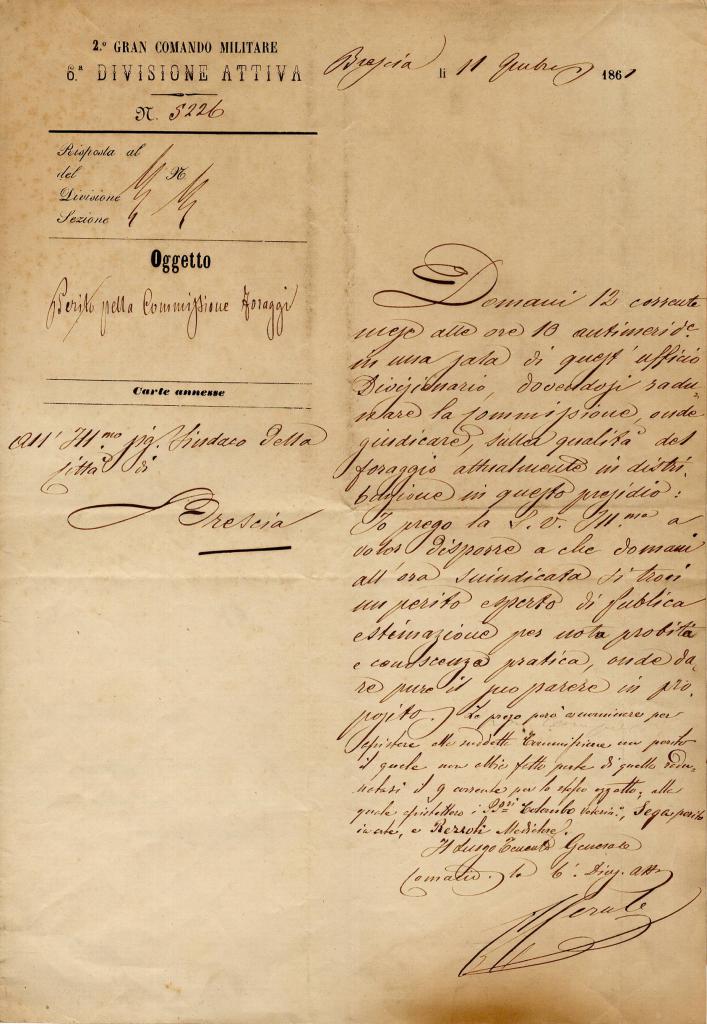 2.º GRAN COMANDO MILITARE
6.ª DIVISIONE ATTIVA
N. 5226
Risposta al
del N.
Divisione
Sezione
Oggetto
Perito pella Commissione Foraggi
Carte annesse
All' Ill.mo sig. Sindaco della
Città di
Brescia
Brescia li 11 1861
Domani 12 corrente
mese alle ore 10 antimerid.e
in una sala di quest' ufficio
Divisionario, dovendosi radu-
nare la commissione, onde
giudicare, sulla qualità del
foraggio attualmente in distri-
buzione in questo presidio:
Io prego la S.V. Ill.ma a
voler disporre a che domani
all' ora suindicata si trovi
un perito esperto di pubblica
estimazione per nota probità
e conoscenza pratica, onde da-
re pure il suo parere in pro-
posito. Le prego però a nominare per
assistere alla suddetta Commissione un perito
il quale non abbia fatto parte di quella
il 9 corrente per lo stesso oggetto, alla
quale assistettero i Colombo Sega perito
in arte, e
Il Luogo Tenente Generale
Comand. la 6.ª Div. att.